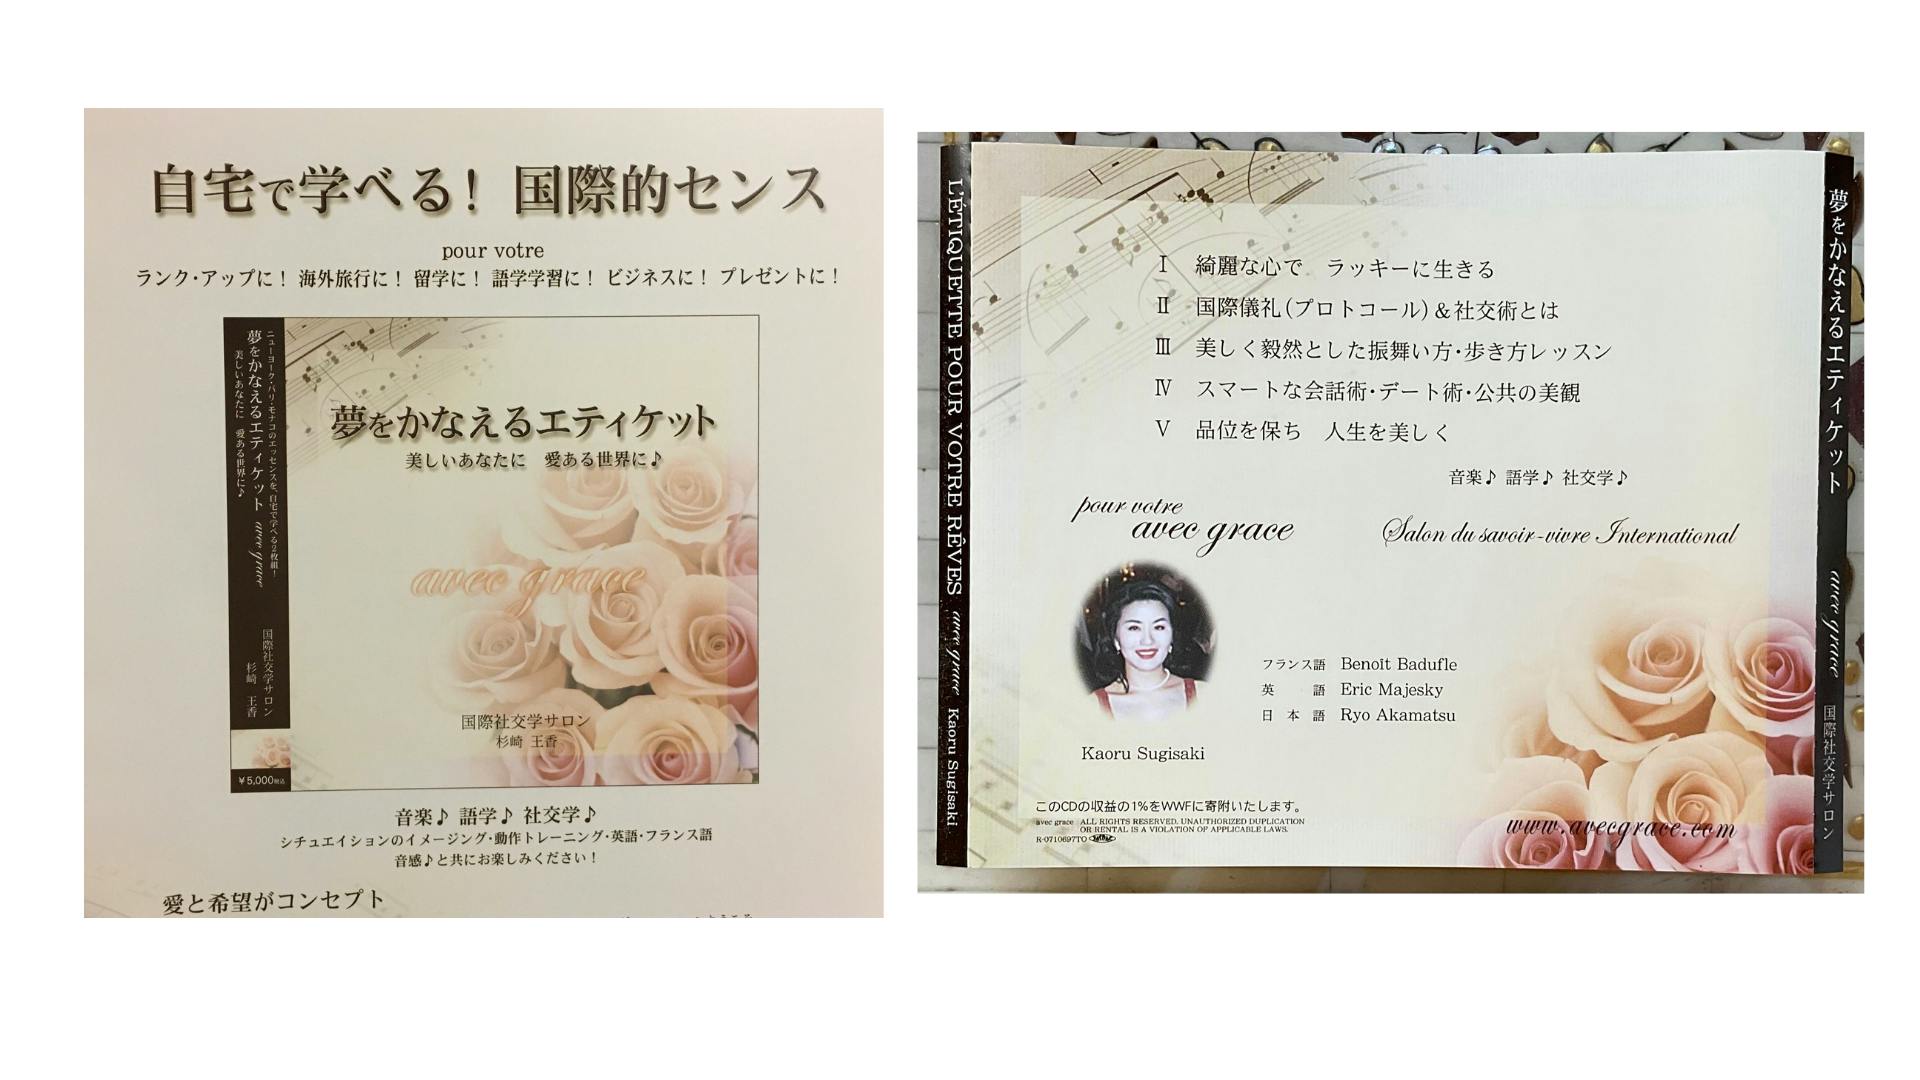 自宅で学べる！ 国際的センス
pour votre
ランク・アップに！ 海外旅行に！ 留学に！ 語学学習に！ ビジネスに！ プレゼントに！
ニューヨーク・パリ・モナコのエッセンスを、自宅で学べる2枚組！
夢をかなえるエティケット avec grace
美しいあなたに 愛ある世界に♪
国際社交学サロン
杉崎 王香
¥5,000税込
夢をかなえるエティケット
美しいあなたに 愛ある世界に♪
avec grace
国際社交学サロン
杉崎 王香
音楽♪ 語学♪ 社交学♪
シチュエイションのイメージング・動作トレーニング・英語・フランス語
音感♪と共にお楽しみください！
愛と希望がコンセプト
L'ÉTIQUETTE POUR VOTRE RÊVES avec grace Kaoru Sugisaki
Ⅰ 綺麗な心で ラッキーに生きる
Ⅱ 国際儀礼（プロトコール）＆社交術とは
Ⅲ 美しく毅然とした振舞い方・歩き方レッスン
Ⅳ スマートな会話術・デート術・公共の美観
Ⅴ 品位を保ち 人生を美しく
音楽♪ 語学♪ 社交学♪
pour votre
avec grace
Salon du savoir-vivre International
フランス語 Benoît Badufle
英語 Eric Majesky
日本語 Ryo Akamatsu
Kaoru Sugisaki
このCDの収益の1%をWWFに寄附いたします。
avec grace ALL RIGHTS RESERVED. UNAUTHORIZED DUPLICATION
OR RENTAL IS A VIOLATION OF APPLICABLE LAWS.
R-0710697TO
www.avecgrace.com
夢をかなえるエティケット avec grace 国際社交学サロン